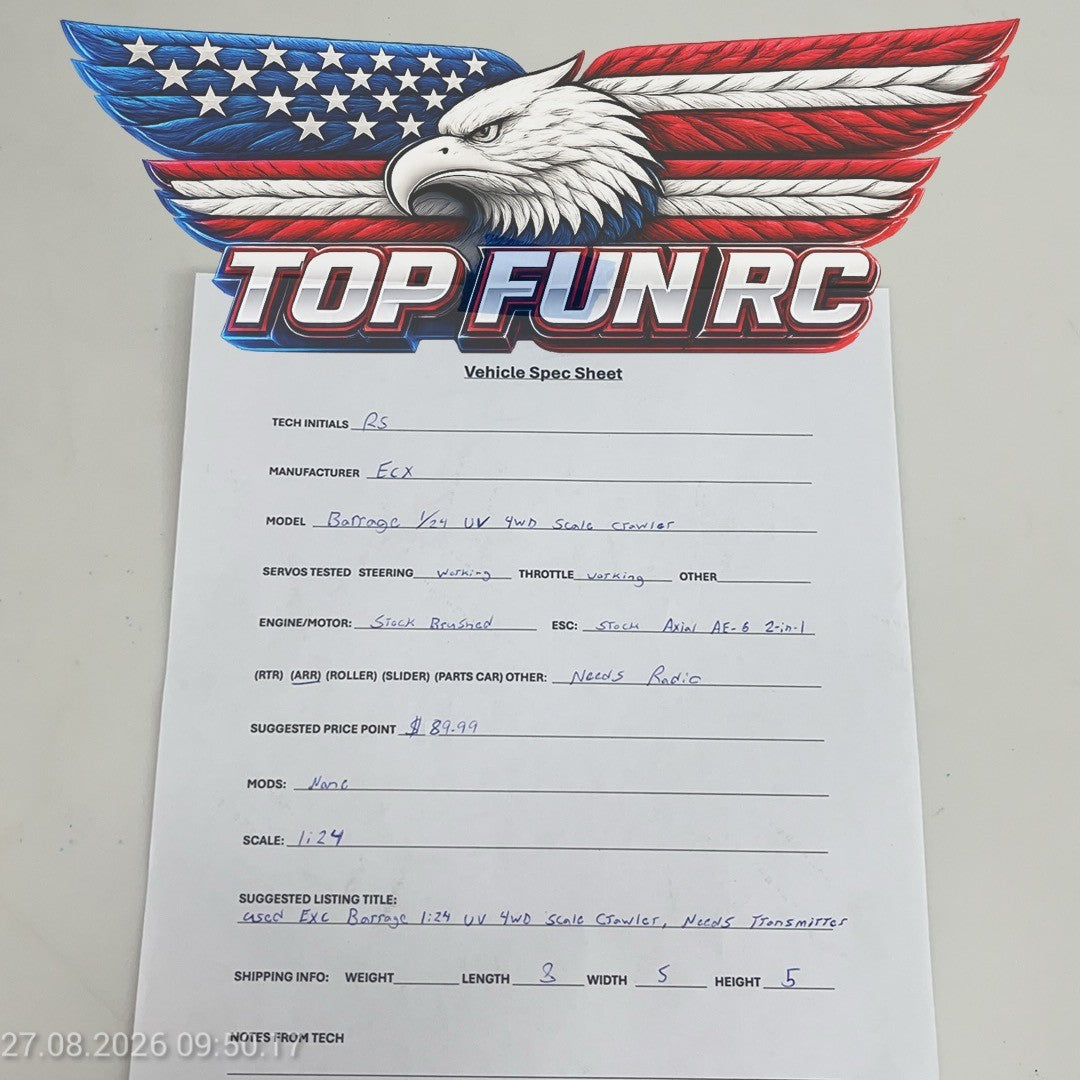 TOP FUN RC
Vehicle Spec Sheet
TECH INITIALS RS
MANUFACTURER Ecx
MODEL Barrage 1/24 UV 4WD Scale Crawler
SERVOS TESTED STEERING Working THROTTLE working OTHER
ENGINE/MOTOR: Stock Brushed ESC: Stock Axial AE-6 2-in-1
(RTR) (ARR) (ROLLER) (SLIDER) (PARTS CAR) OTHER: Needs Radio
SUGGESTED PRICE POINT $ 89.99
MODS: None
SCALE: 1:24
SUGGESTED LISTING TITLE:
used Exc Barrage 1:24 UV 4WD Scale Crawler, Needs Transmitter
SHIPPING INFO: WEIGHT LENGTH 8 WIDTH 5 HEIGHT 5
NOTES FROM TECH
27.08.2026 09:50:17